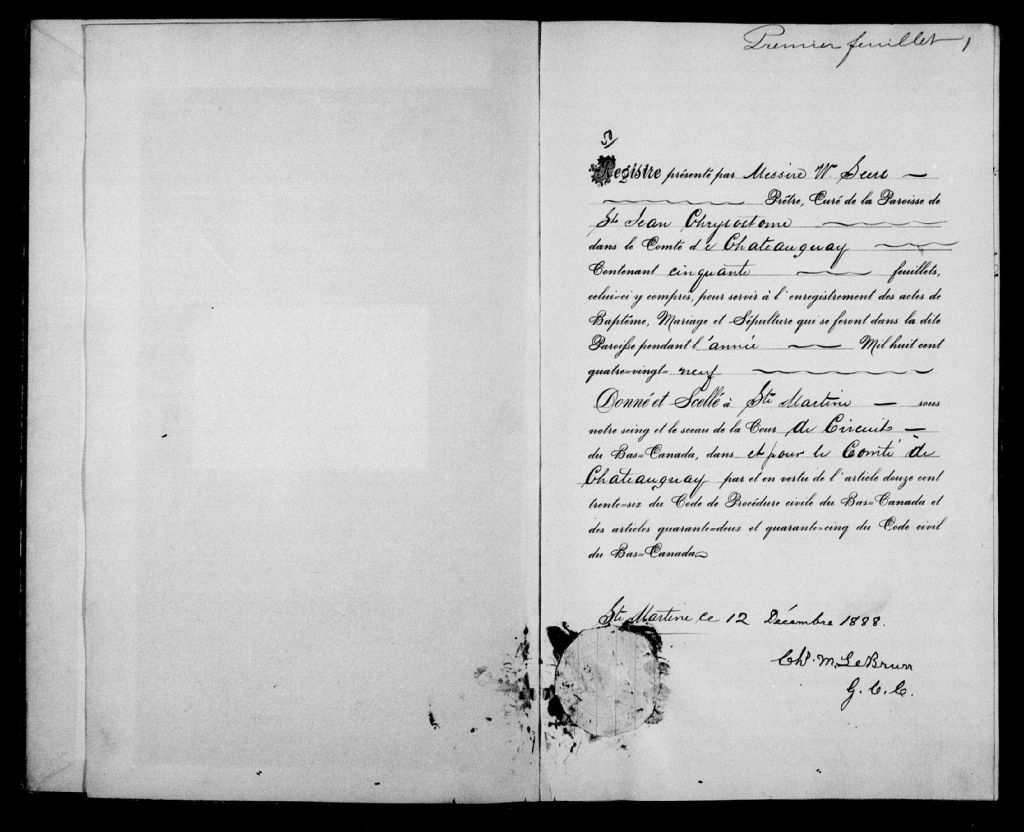 Premier feuillet 1
50
Registre présenté par Messire W.
Prêtre, Curé de la Paroisse de
St Jean Chrysostome
dans le Comté de Chateauguay
Contenant cinquante feuillets,
celui-ci y compris, pour servir à l'enregistrement des actes de
Baptême, Mariage et Sépulture qui se feront dans la dite
Paroisse pendant l'année Mil huit cent
quatre=vingt= neuf
Donné et Scellé à Ste Martine sous
notre seing et le sceau de la Cour de Circuit
du Bas=Canada, dans et pour le Comté de
Chateauguay par et en vertu de l'article douze cent
trente=six du Code de Procédure civile du Bas=Canada et
des articles quarante=deux et quarante=cinq du Code civil
du Bas=Canada
Ste Martine ce 12 Décembre 1888.
Chs. M. LeBrun
G. C. C.